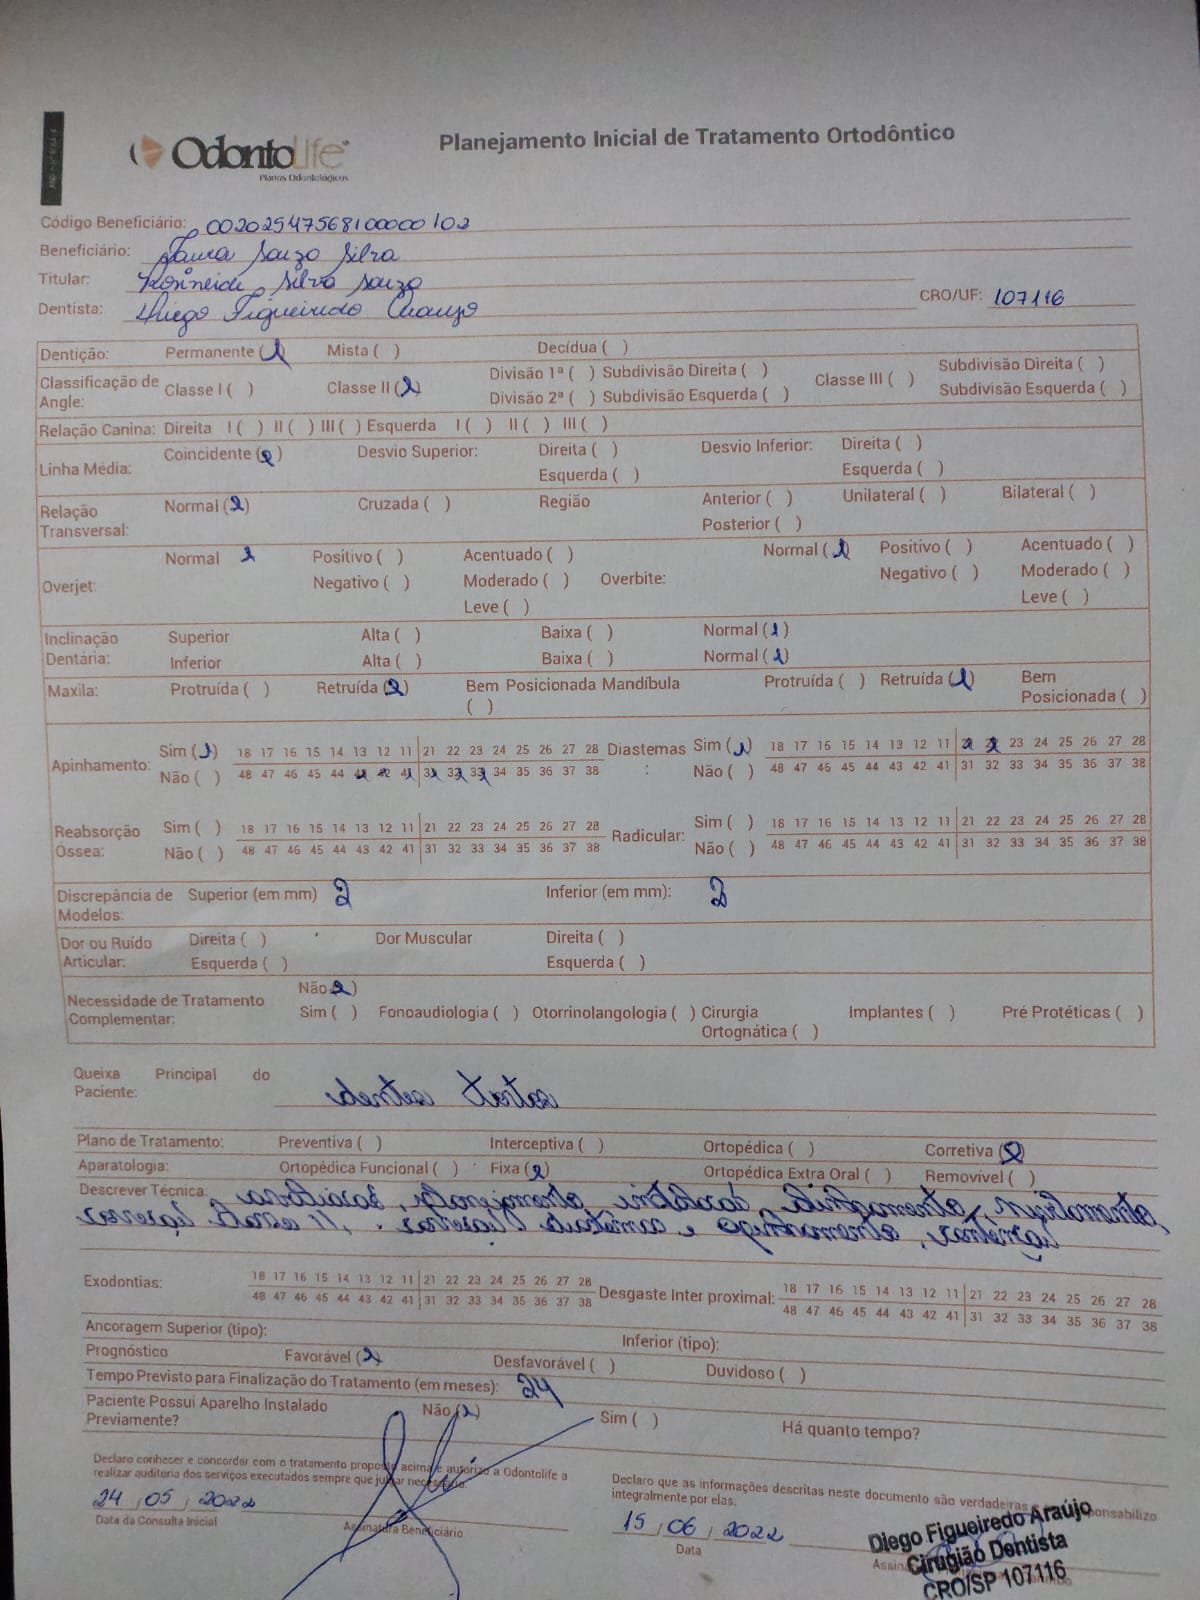 OdontoLife
Planos Odontológicos
Planejamento Inicial de Tratamento Ortodôntico
Código Beneficiário: 00202547568100000102
Beneficiário: Souza Silva
Titular: Rosineide Silva Souza
Dentista: Diego Figueiredo Araujo CRO/UF: 107116
Dentição: Permanente ( ) Mista ( ) Decídua ( )
Classificação de Angle: Classe I ( ) Classe II ( ) Divisão 1ª ( ) Subdivisão Direita ( ) Classe III ( ) Subdivisão Direita ( )
Divisão 2ª ( ) Subdivisão Esquerda ( ) Subdivisão Esquerda ( )
Relação Canina: Direita I ( ) II ( ) III ( ) Esquerda I ( ) II ( ) III ( )
Linha Média: Coincidente ( ) Desvio Superior: Direita ( ) Desvio Inferior: Direita ( )
Esquerda ( ) Esquerda ( )
Relação Transversal: Normal ( ) Cruzada ( ) Região Anterior ( ) Unilateral ( ) Bilateral ( )
Posterior ( )
Overjet: Normal Positivo ( ) Acentuado ( ) Overbite: Normal ( ) Positivo ( ) Acentuado ( )
Negativo ( ) Moderado ( ) Negativo ( ) Moderado ( )
Leve ( ) Leve ( )
Inclinação Dentária: Superior Alta ( ) Baixa ( ) Normal ( )
Inferior Alta ( ) Baixa ( ) Normal ( )
Maxila: Protruída ( ) Retruída ( ) Bem Posicionada ( ) Mandíbula Protruída ( ) Retruída ( ) Bem Posicionada ( )
Apinhamento: Sim ( ) 18 17 16 15 14 13 12 11 21 22 23 24 25 26 27 28 Diastemas: Sim ( ) 18 17 16 15 14 13 12 11 21 22 23 24 25 26 27 28
Não ( ) 48 47 46 45 44 43 42 41 31 32 33 34 35 36 37 38 Não ( ) 48 47 46 45 44 43 42 41 31 32 33 34 35 36 37 38
Reabsorção Óssea: Sim ( ) 18 17 16 15 14 13 12 11 21 22 23 24 25 26 27 28 Radicular: Sim ( ) 18 17 16 15 14 13 12 11 21 22 23 24 25 26 27 28
Não ( ) 48 47 46 45 44 43 42 41 31 32 33 34 35 36 37 38 Não ( ) 48 47 46 45 44 43 42 41 31 32 33 34 35 36 37 38
Discrepância de Modelos: Superior (em mm) 2 Inferior (em mm): 2
Dor ou Ruído Articular: Direita ( ) Dor Muscular Direita ( )
Esquerda ( ) Esquerda ( )
Necessidade de Tratamento Complementar: Não ( )
Sim ( ) Fonoaudiologia ( ) Otorrinolangologia ( ) Cirurgia Ortognática ( ) Implantes ( ) Pré Protéticas ( )
Queixa Principal do Paciente: dentes tortos
Plano de Tratamento: Preventiva ( ) Interceptiva ( ) Ortopédica ( ) Corretiva ( )
Aparatologia: Ortopédica Funcional ( ) Fixa ( ) Ortopédica Extra Oral ( ) Removível ( )
Descrever Técnica:
Exodontias: 18 17 16 15 14 13 12 11 21 22 23 24 25 26 27 28 Desgaste Inter proximal: 18 17 16 15 14 13 12 11 21 22 23 24 25 26 27 28
48 47 46 45 44 43 42 41 31 32 33 34 35 36 37 38 48 47 46 45 44 43 42 41 31 32 33 34 35 36 37 38
Ancoragem Superior (tipo): Inferior (tipo):
Prognóstico Favorável ( ) Desfavorável ( ) Duvidoso ( )
Tempo Previsto para Finalização do Tratamento (em meses): 24
Paciente Possui Aparelho Instalado Previamente? Não ( ) Sim ( ) Há quanto tempo?
Declaro conhecer e concordar com o tratamento proposto acima e autorizo a Odontolife a
realizar auditoria dos serviços executados sempre que julgar necessário.
24 / 05 / 2022
Data da Consulta Inicial Assinatura Beneficiário
Declaro que as informações descritas neste documento são verdadeiras responsabilizo
integralmente por elas.
15 / 06 / 2022
Data
Diego Figueiredo Araújo
Cirugião Dentista
CRO/SP 107116